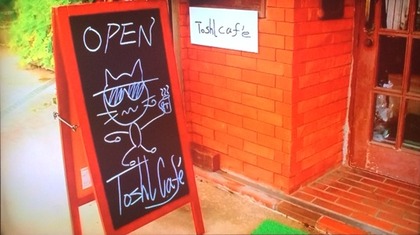 OPEN
Toshl Café
Toshl café